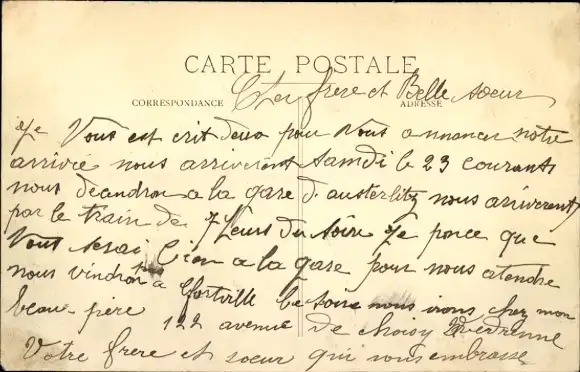 CARTE POSTALE
CORRESPONDANCE
ADRESSE
Cher frere et Belle soeur
Je Vous est crit deux pour Vous anoncer notre
arrivée nous arriverent samdi le 23 courant
nous déandron a la gare d'austerlitz nous arriverent
par le train de 7 heurs du soire Je pence que
Vous serai bien a la gare pour nous atendre
nous vindront a Alfortville le soire nous irons chez mon
beau-père 122 avenue de choisy Vedrenne
Votre frere et soeur qui vous embrasse